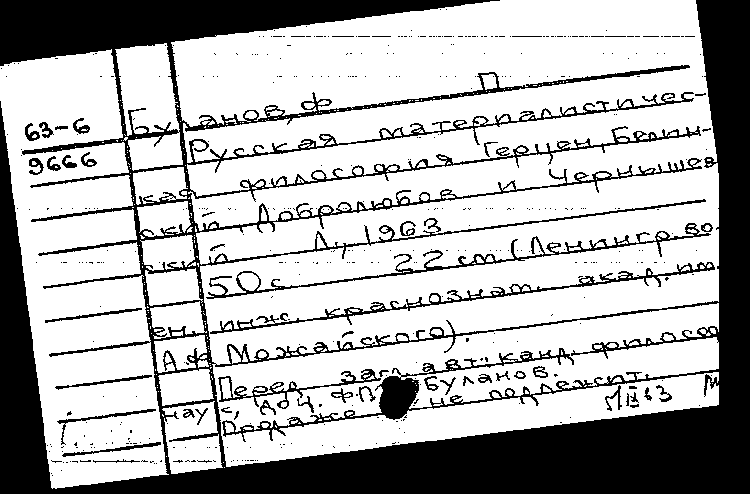 63-6
9666
Буланов, Ф П
Русская материалистичес-
кая философия Герцен, Белин-
ский, Добролюбов и Чернышев
ский Л., 1963
50 с 22 см (Ленингр. во.
ен. инж. краснознам. акад. им.
А Ф Можайского).
Перед загл. авт.: канд. философ
наук, доц. Ф П Буланов.
Продаже не подлежит.